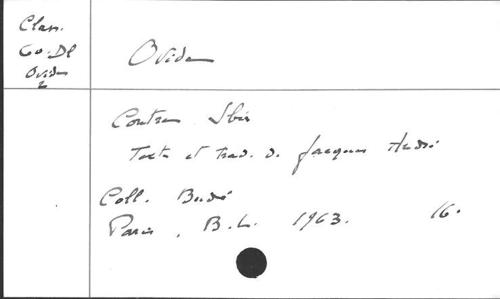 Class.
60. Dl
Ovide
2
Ovide
Contre Ibis
Texte et trad. d. Jacques André
Coll. Budé
Paris, B.L. 1963. 16.